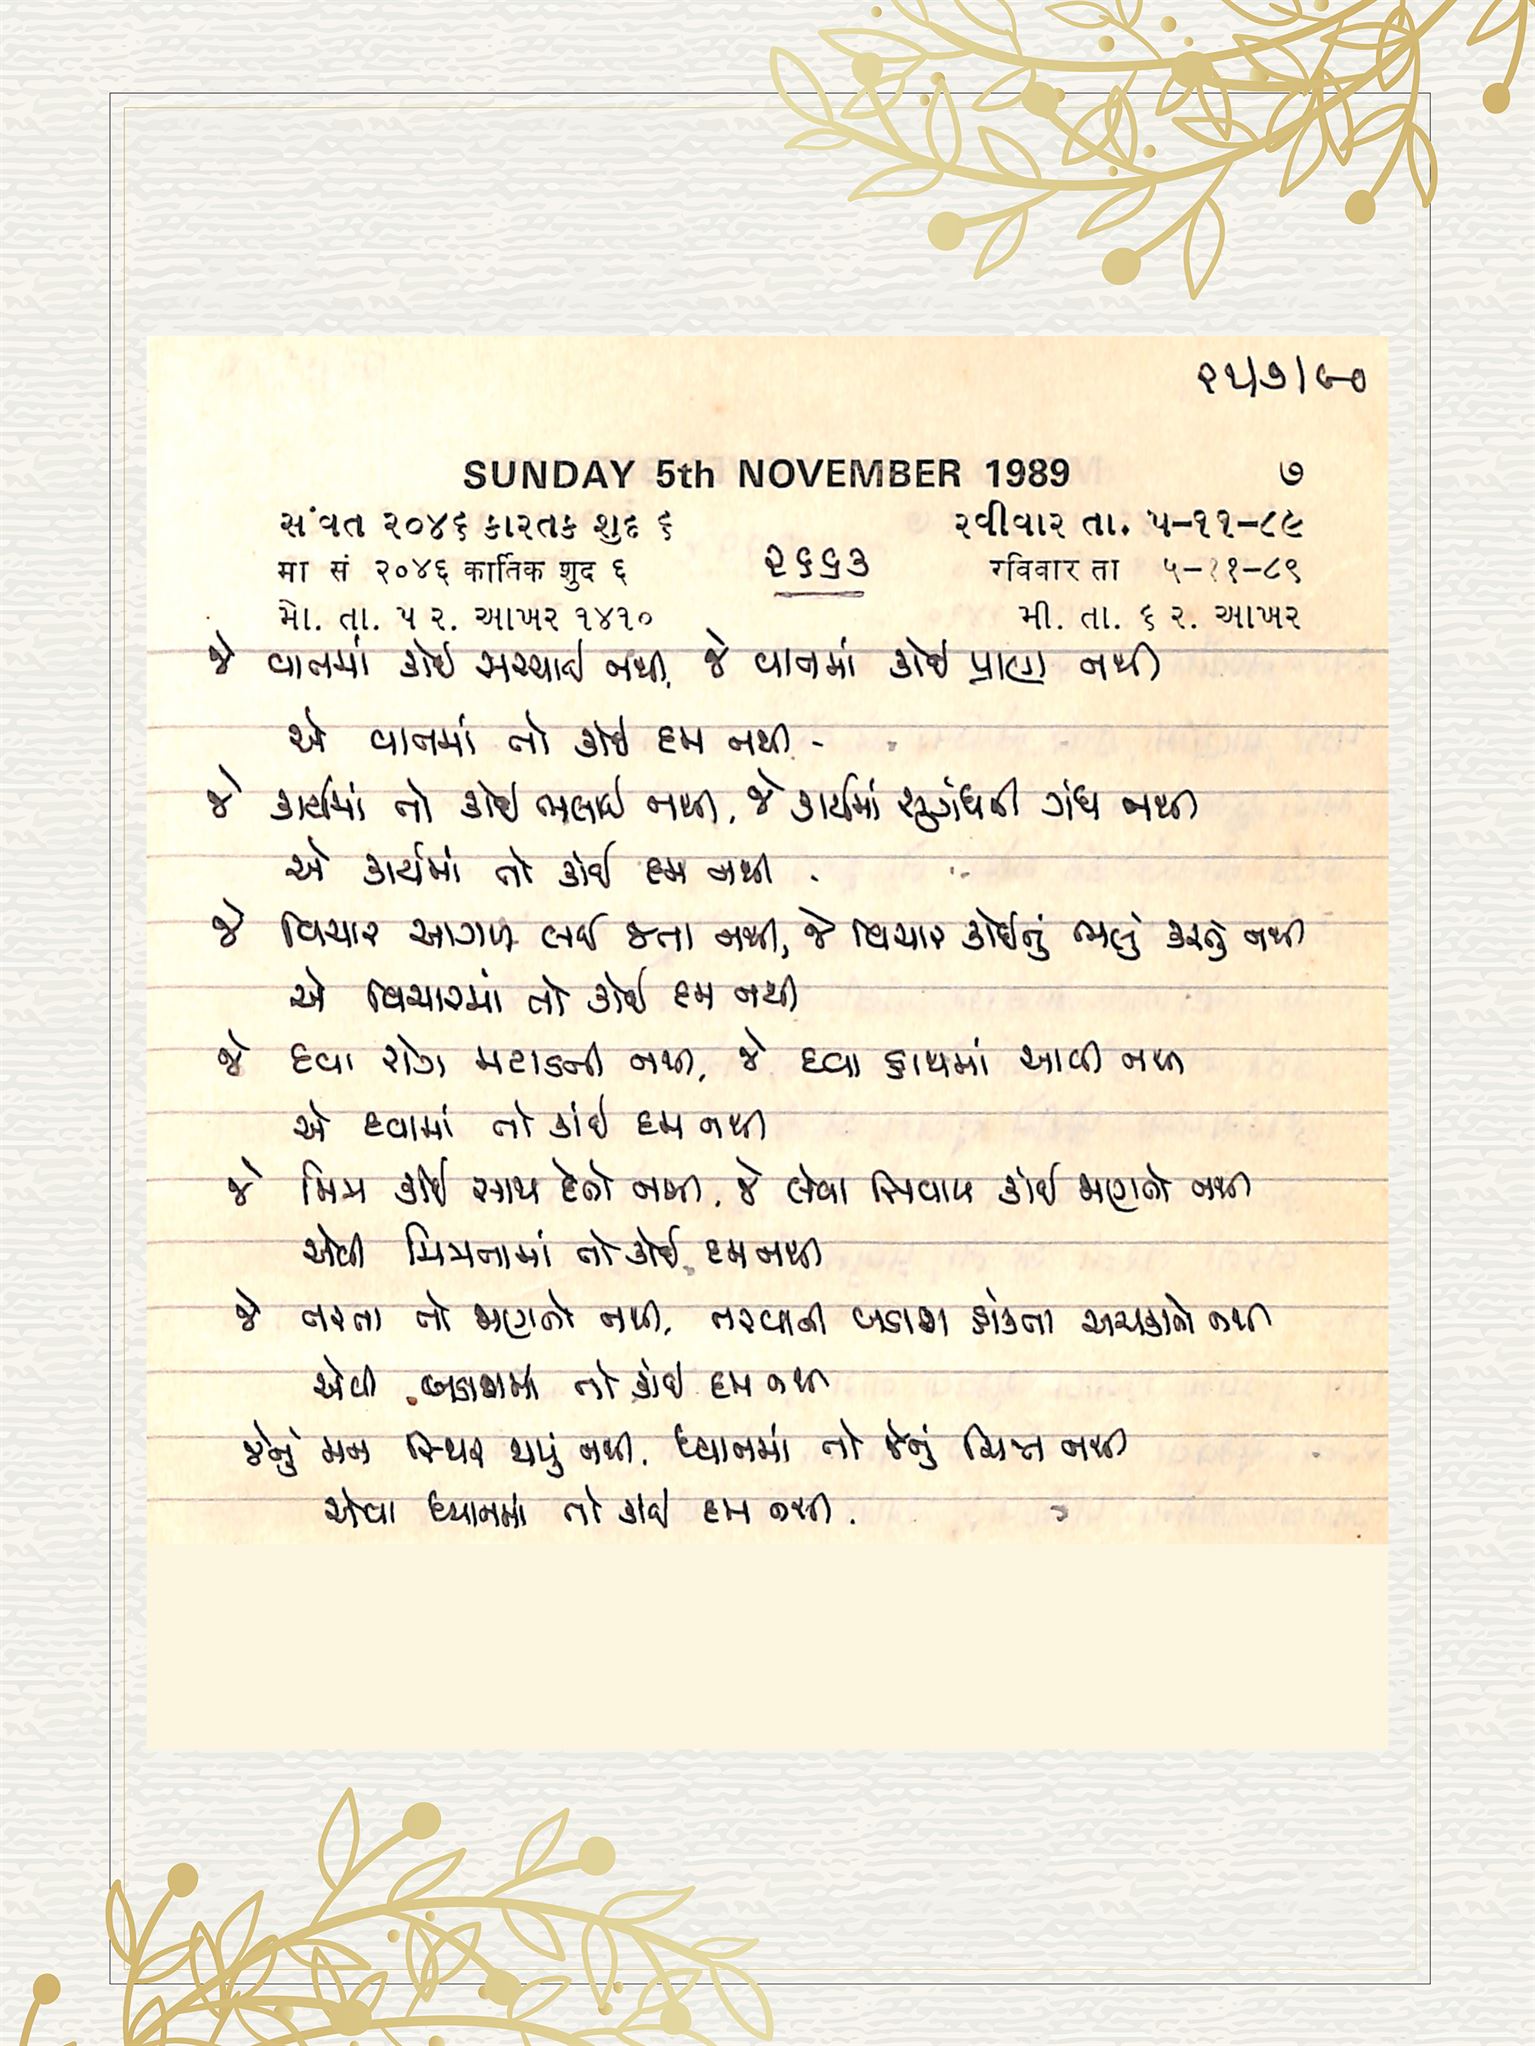 ૨૫/૭/૯૦
SUNDAY 5th NOVEMBER 1989 ૭
સંવત ૨૦૪૬ કારતક શુદ ૬ રવીવાર તા. ૫-૧૧-૮૯
मा सं २०४६ कार्तिक शुद ६ ૨૬૬૩ रविवार ता ५-११-८९
મો. તા. ૫ ર. આખર ૧૪૧૦ મી. તા. ૬ ર. આખર
જે વાતમાં કોઈ સચ્ચાઈ નથી, જે વાતમાં કોઈ પ્રાણ નથી
એ વાતમાં તો કોઈ દમ નથી -
જે કાર્યમાં તો કોઈ ભલાઈ નથી, જે કાર્યમાં સુગંધની ગંધ નથી
એ કાર્યમાં તો કોઈ દમ નથી .
જે વિચાર આગળ લઈ જતા નથી, જે વિચાર કોઈનું ભલું કરતું નથી
એ વિચારમાં તો કોઈ દમ નથી
જે દવા રોગ મટાડતી નથી, જે દવા કામમાં આવી નથી
એ દવામાં તો કાંઈ દમ નથી
જે મિત્ર કોઈ સાથ દેતો નથી, જે લેવા સિવાય કોઈ જાણતો નથી
એવી મિત્રતામાં તો કોઈ દમ નથી
જે તરતા તો જાણતો નથી, તરવાની બડાશ હાંકતા અચકાતો નથી
એવી બડાશમાં તો કોઈ દમ નથી
જેનું મન સ્થિર થયું નથી, ધ્યાનમાં તો જેનું ચિત્ત નથી
એવા ધ્યાનમાં તો કાંઈ દમ નથી .